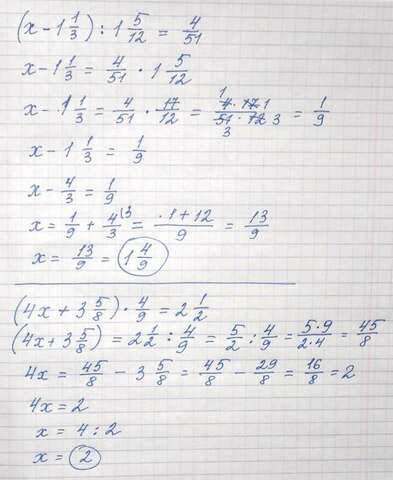 (x - 1 1/3) : 1 5/12 = 4/51
x - 1 1/3 = 4/51 · 1 5/12
x - 1 1/3 = 4/51 · 17/12 = 4 · 17/51 · 12 1 1 3 3 = 1/9
x - 1 1/3 = 1/9
x - 4/3 = 1/9
x = 1/9 + 4/3 (3 = · 1 + 12/9 = 13/9
x = 13/9 = 1 4/9
(4x + 3 5/8) · 4/9 = 2 1/2
(4x + 3 5/8) = 2 1/2 : 4/9 = 5/2 : 4/9 = 5 · 9/2 · 4 = 45/8
4x = 45/8 - 3 5/8 = 45/8 - 29/8 = 16/8 = 2
4x = 2
x = 4 : 2
x = 2